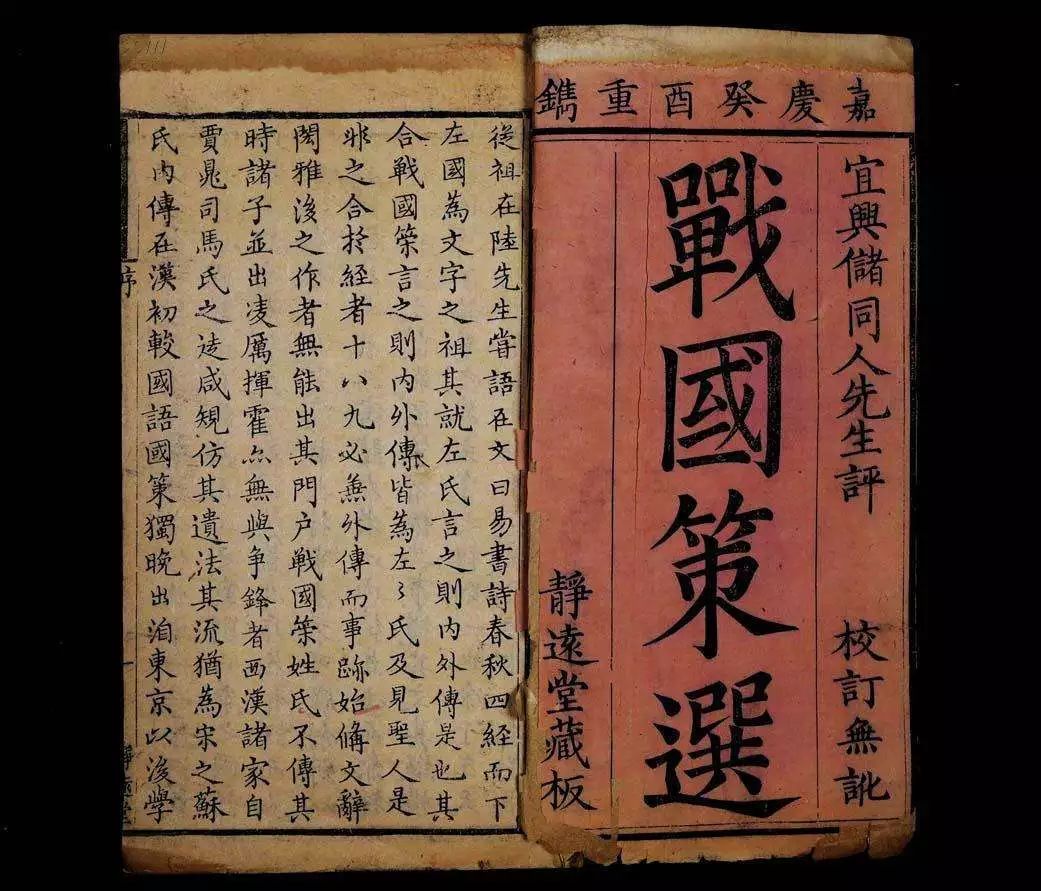 嘉慶癸酉重鐫
宜興儲同人先生評 校訂無訛
戰國策選
靜遠堂藏板
從祖在陸先生嘗語在文曰易書詩春秋四經而下
左國為文字之祖其就左氏言之則內外傳是也其
合戰國策言之則內外傳皆為左々氏及見聖人是
非之合於經者十八九必無外傳而事跡始備文辭
閎雅後之作者無能出其門戶戰國策姓氏不傳其
時諸子並出凌厲揮霍亦無與爭鋒者西漢諸家自
賈晁司馬氏之徒咸規仿其遺法其流猶為宋之蘇
氏內傳在漢初較國語國策獨晚出洎東京以後學
序
一
靜遠堂